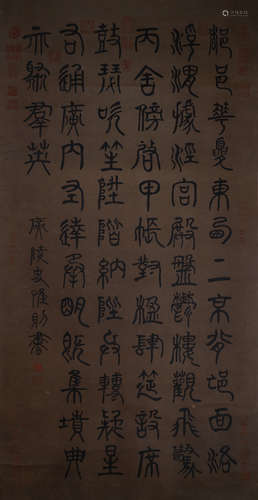 都邑華夏東西二京背邙面洛
浮渭據涇宮殿盤鬱樓觀飛驚
丙舍傍啓甲帳對楹肆筵設席
鼓瑟吹笙陞階納陛弁轉疑星
右通廣內左達承明既集墳典
亦聚羣英
廣陵史惟則書